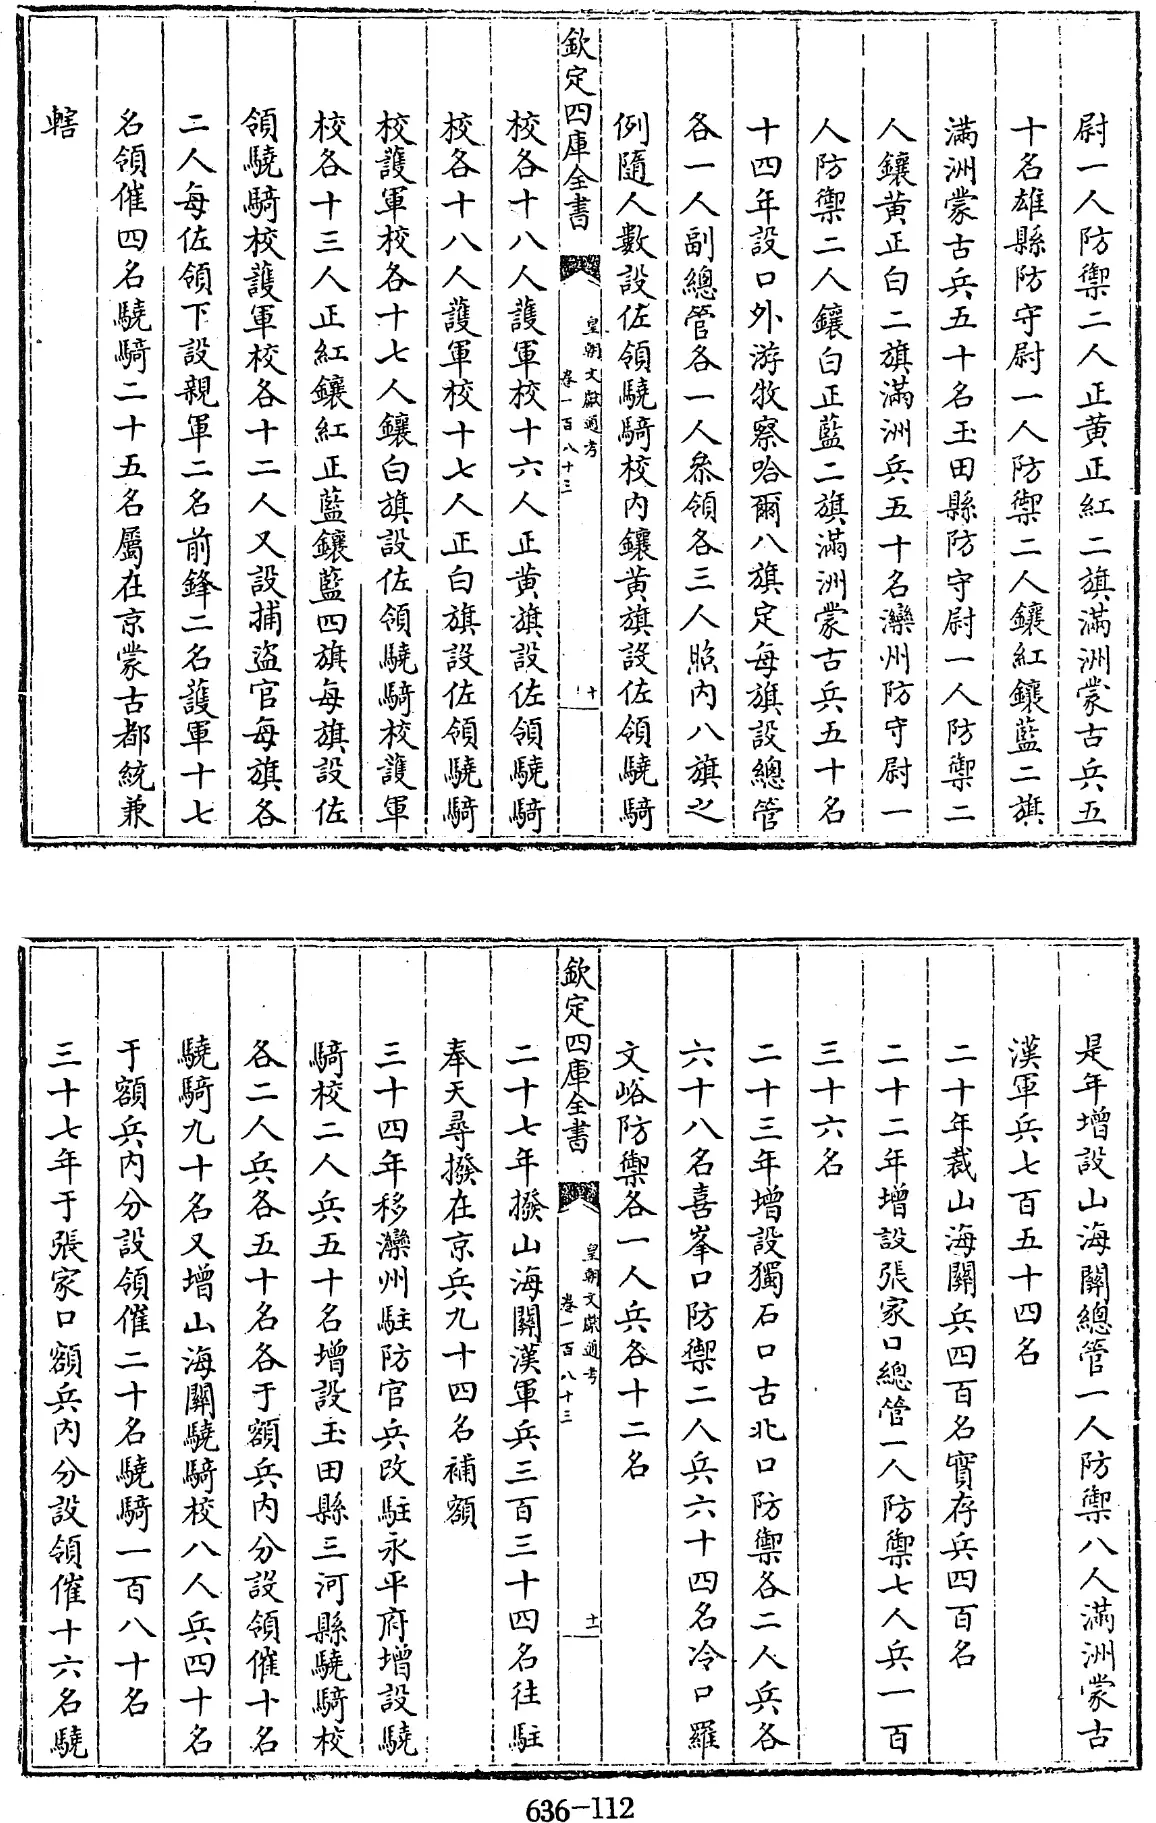 尉一人防禦二人正黄正紅二旗滿洲蒙古兵五
十名雄縣防守尉一人防禦二人鑲紅鑲藍二旗
滿洲蒙古兵五十名玉田縣防守尉一人防禦二
人鑲黄正白二旗滿洲兵五十名灤州防守尉一
人防禦二人鑲白正藍二旗滿洲蒙古兵五十名
十四年設口外游牧察哈爾八旗定每旗設總管
各一人副總管各一人叅領各三人照内八旗之
例隨人數設佐領驍騎校内鑲黄旗設佐領驍騎
欽定四庫全書
皇朝文獻通考
卷一百八十三
十
校各十八人護軍校十六人正黄旗設佐領驍騎
校各十八人護軍校十七人正白旗設佐領驍騎
校護軍校各十七人鑲白旗設佐領驍騎校護軍
校各十三人正紅鑲紅正藍鑲藍四旗每旗設佐
領驍騎校護軍校各十二人又設捕盜官每旗各
二人每佐領下設親軍二名前鋒二名護軍十七
名領催四名驍騎二十五名屬在京蒙古都統兼
轄
是年增設山海關總管一人防禦八人滿洲蒙古
漢軍兵七百五十四名
二十年裁山海關兵四百名實存兵四百名
二十二年增設張家口總管一人防禦七人兵一百
三十六名
二十三年增設獨石口古北口防禦各二人兵各
六十八名喜峯口防禦二人兵六十四名冷口羅
文峪防禦各一人兵各十二名
欽定四庫全書
皇朝文獻通考
卷一百八十三
十一
二十七年撥山海關漢軍兵三百三十四名往駐
奉天尋撥在京兵九十四名補額
三十四年移灤州駐防官兵改駐永平府增設驍
騎校二人兵五十名增設玉田縣三河縣驍騎校
各二人兵各五十名各于額兵内分設領催十名
驍騎九十名又增山海關驍騎校八人兵四十名
于額兵内分設領催二十名驍騎一百八十名
三十七年于張家口額兵内分設領催十六名驍
636-112